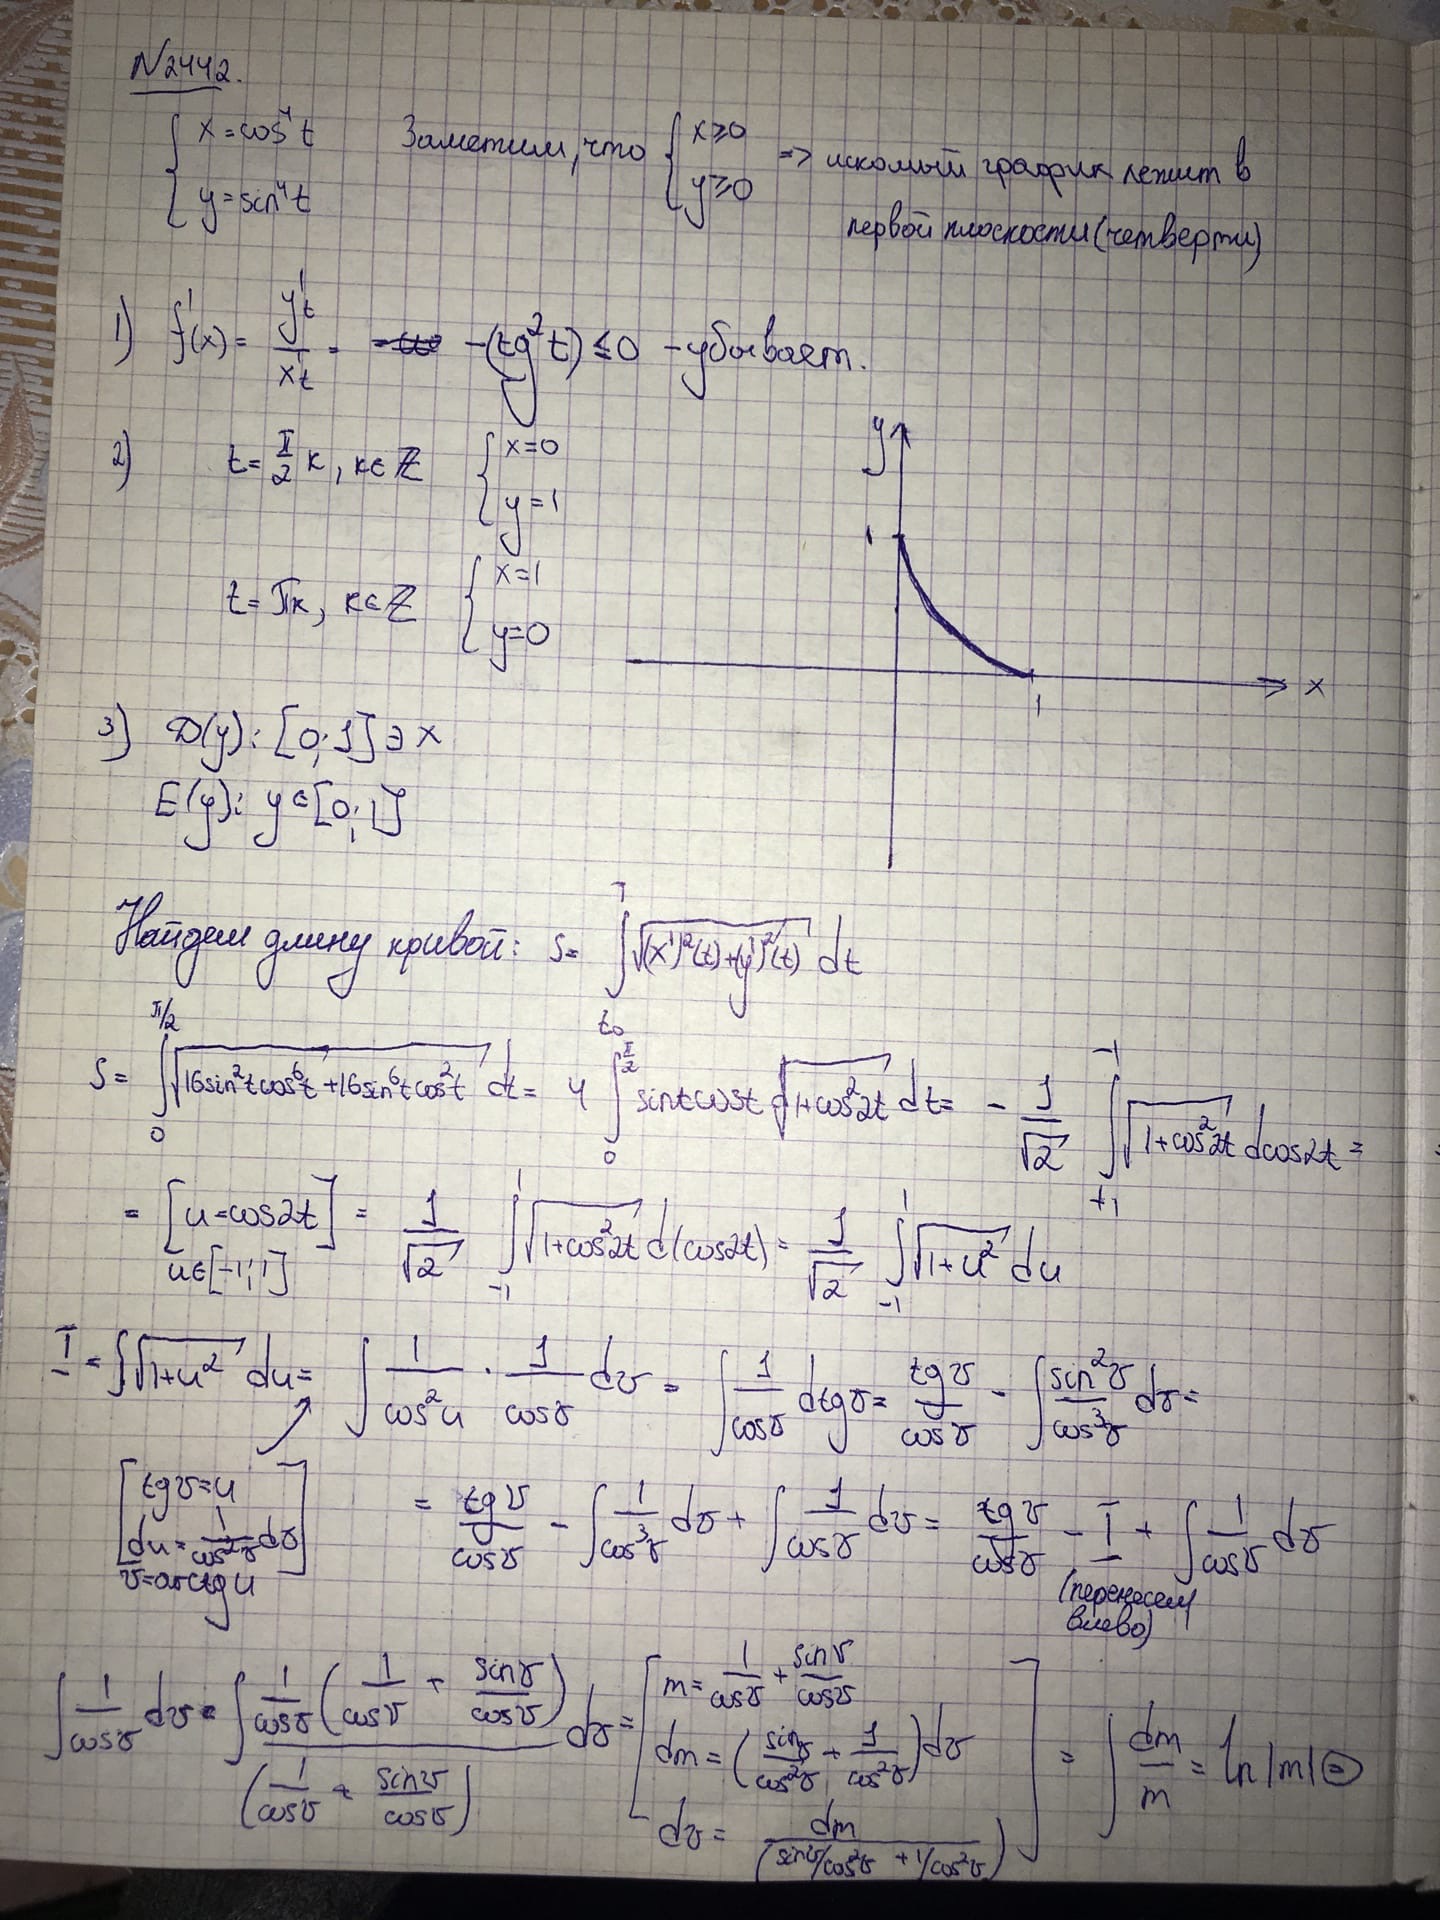 N2442.
{ x = cos⁴t   Заметим, что { x≥0 => искомый график лежит в
{ y = sin⁴t   { y≥0   первой плоскости (четверти)
1) f'(x) = y't / x't = -(tg²t) ≤ 0 - убывает.
2) t = π/2 k, k∈ℤ { x=0
{ y=1
y
1
t = πk, k∈ℤ { x=1
{ y=0
x
1
3) D(y): [0;1] ∋ x
E(y): y∈[0;1]
Найдем длину кривой: S = ∫_{t₀}^{T} √((x')²(t)+(y')²(t)) dt
S = ∫_0^{π/2} √(16sin²t cos⁶t + 16sin⁶t cos²t) dt = 4 ∫_0^{π/2} sint cost √(1+cos²2t) dt = - 1/√2 ∫_{+1}^{-1} √(1+cos²2t) dcos2t =
= [u=cos2t
u∈[-1;1]] = 1/√2 ∫_{-1}^{1} √(1+cos²2t) d(cos2t) = 1/√2 ∫_{-1}^{1} √(1+u²) du
I = ∫√(1+u²) du = ∫ 1/cos²u · 1/cosv dv = ∫ 1/cosv dtgv = tgv/cosv - ∫ sin²v/cos³v dv =
[tgv=u
du = 1/cos²v dv
v=arctgu]
= tgv/cosv - ∫ 1/cos³v dv + ∫ 1/cosv dv = tgv/cosv - I + ∫ 1/cosv dv
(перенесем
влево)
∫ 1/cosv dv = ∫ 1/cosv (1/cosv + sinv/cosv) / (1/cosv + sinv/cosv) dv = [m = 1/cosv + sinv/cosv
dm = (sinv/cos²v + 1/cos²v) dv
dv = dm/(sinv/cos²v + 1/cos²v)] = ∫ dm/m = ln|m| ⊜